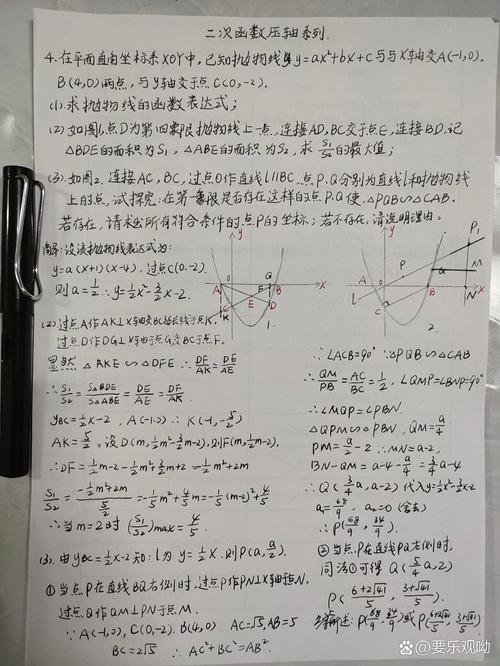 二次函数压轴系列.
4.在平面直角坐标系XOY中,已知抛物线y=ax²+bx+c与与X轴交A(-1,0).
B(4,0)两点,与y轴交于点C(0,-2).
(1).求抛物线的函数表达式;
(2).如图1,点D为第四象限抛物线上一点,连接AD,BC交于点E,连接BD.记
△BDE的面积为S₁,△ABE的面积为S₂,求S₁/S₂的最大值;
(3).如图2,连接AC,BC,过点O作直线l∥BC.点P.Q分别为直线l和抛物线
上的点,试探究:在第一象限是否存在这样的点P.Q使△PQB∽△CAB.
若存在,请求出所有符合条件的点P的坐标;若不存在,请说明理由.
解:设该抛物线表达式为:
y=a(x+1)(x-4),过点C(0.-2).
则a=1/2∴y=1/2x²-3/2x-2.
(2).过点A作AK⊥X轴交BC延长线于点K,
过点D作DG⊥X轴于点G交BC于点F.
显然△AKE∽△DFE∴DF/AK=DE/AE
∴S₁/S₂=S△BDE/S△ABE=DE/AE=DF/AK.
yBC=1/2x-2,A(-1.0)∴K(-1,-5/2)
AK=5/2.设D(m,1/2m²-3/2m-2),则F(m,1/2m-2),
∴DF=1/2m-2-1/2m²+3/2m+2=-1/2m²+2m
S₁/S₂=(-1/2m²+2m)/(5/2)=-1/5m²+4/5m=-1/5(m-2)²+4/5
∴当m=2时(S₁/S₂)max=4/5.
(3).由yBC=1/2x-2知:l为y=1/2x.则P(a,a/2).
①当点P在直线BQ右侧时,过点P作PN⊥X轴于点N,
过点Q作QM⊥PN于点M.
∵A(-1,0),C(0.-2).B(4,0) AC=√5,AB=5
BC=2√5 ∴AC²+BC²=AB².
A
O
G
B
X
y
C
K
E
F
D
1.
l
A
O
P
Q
B
C
P₁
M
N
X
y
2.
∴∠ACB=90°∵△PQB∽△CAB
∴QM/PB=AC/BC=1/2,∠QMP=∠BNP=90°
∴∠MQP=∠PBN.
△QPM∽△PBN,QM=a/4
PM=a/2-2∴MN=a-2,
BN-QM=a-4-a/4=3/4a-4
∴Q(3/4a,a-2)代入y=1/2x²-3/2x-2
a₁=68/9,a₂=0(舍去)
∴P(68/9,34/9).
②当点P在直线PQ左侧时,
同法①可得Q(5/4a,2)
P(6+2√41/5,3+√41/5).
综所述:P(68/9,34/9)或P(6+2√41/5,3+√41/5)
@要乐观呦